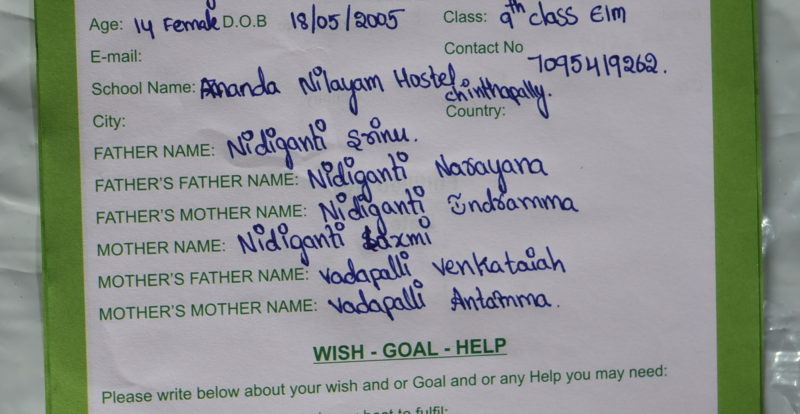 Age: 14 Female D.O.B 18/05/2005 Class: 9th class E/m
E-mail: Contact No 7095419262.
School Name: Ananda Nilayam Hostel. chinthapally.
City: Country:
FATHER NAME: Nidiganti Srinu.
FATHER'S FATHER NAME: Nidiganti Narayana
FATHER'S MOTHER NAME: Nidiganti Indramma
MOTHER NAME: Nidiganti Laxmi
MOTHER'S FATHER NAME: Vadapalli Venkataiah
MOTHER'S MOTHER NAME: Vadapalli Antamma.
WISH - GOAL - HELP
Please write below about your wish and or Goal and or any Help you may need:
best to fulfil: